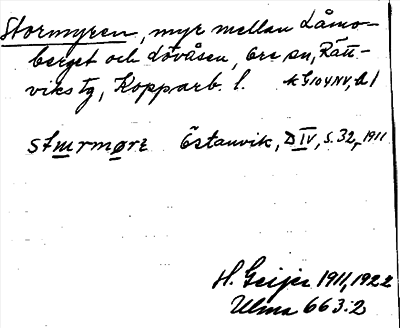 Stormyren, myr mellan Låmo-
berget och Lövåsen, Ore sn, Rätt-
viks tg, Kopparb. l. k G104NV, h 1
Östanvik, D IV, s. 32, 1911
H. Geijer 1911, 1922
Ulma 663:2